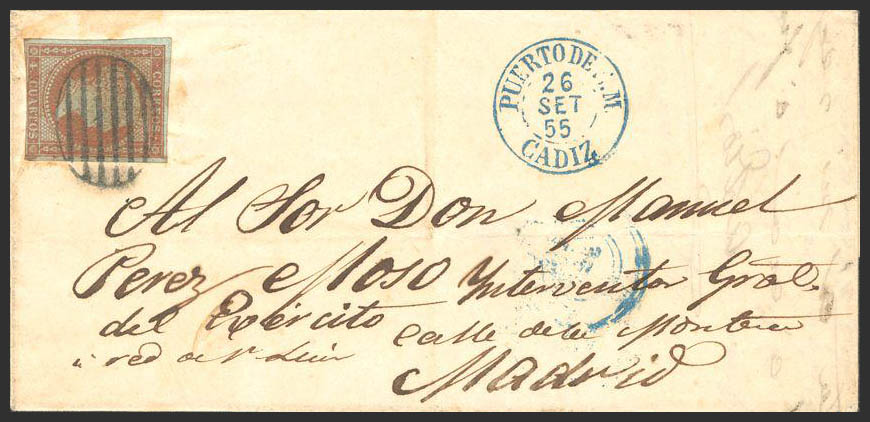 CORREOS
4 CUARTOS
PUERTO DE S.M
26
SET
55
CADIZ
Al Sor Don Manuel
Perez Moso Interventor Gral.
del Exército calle de la Montera
red de Sn Luis
Madrid